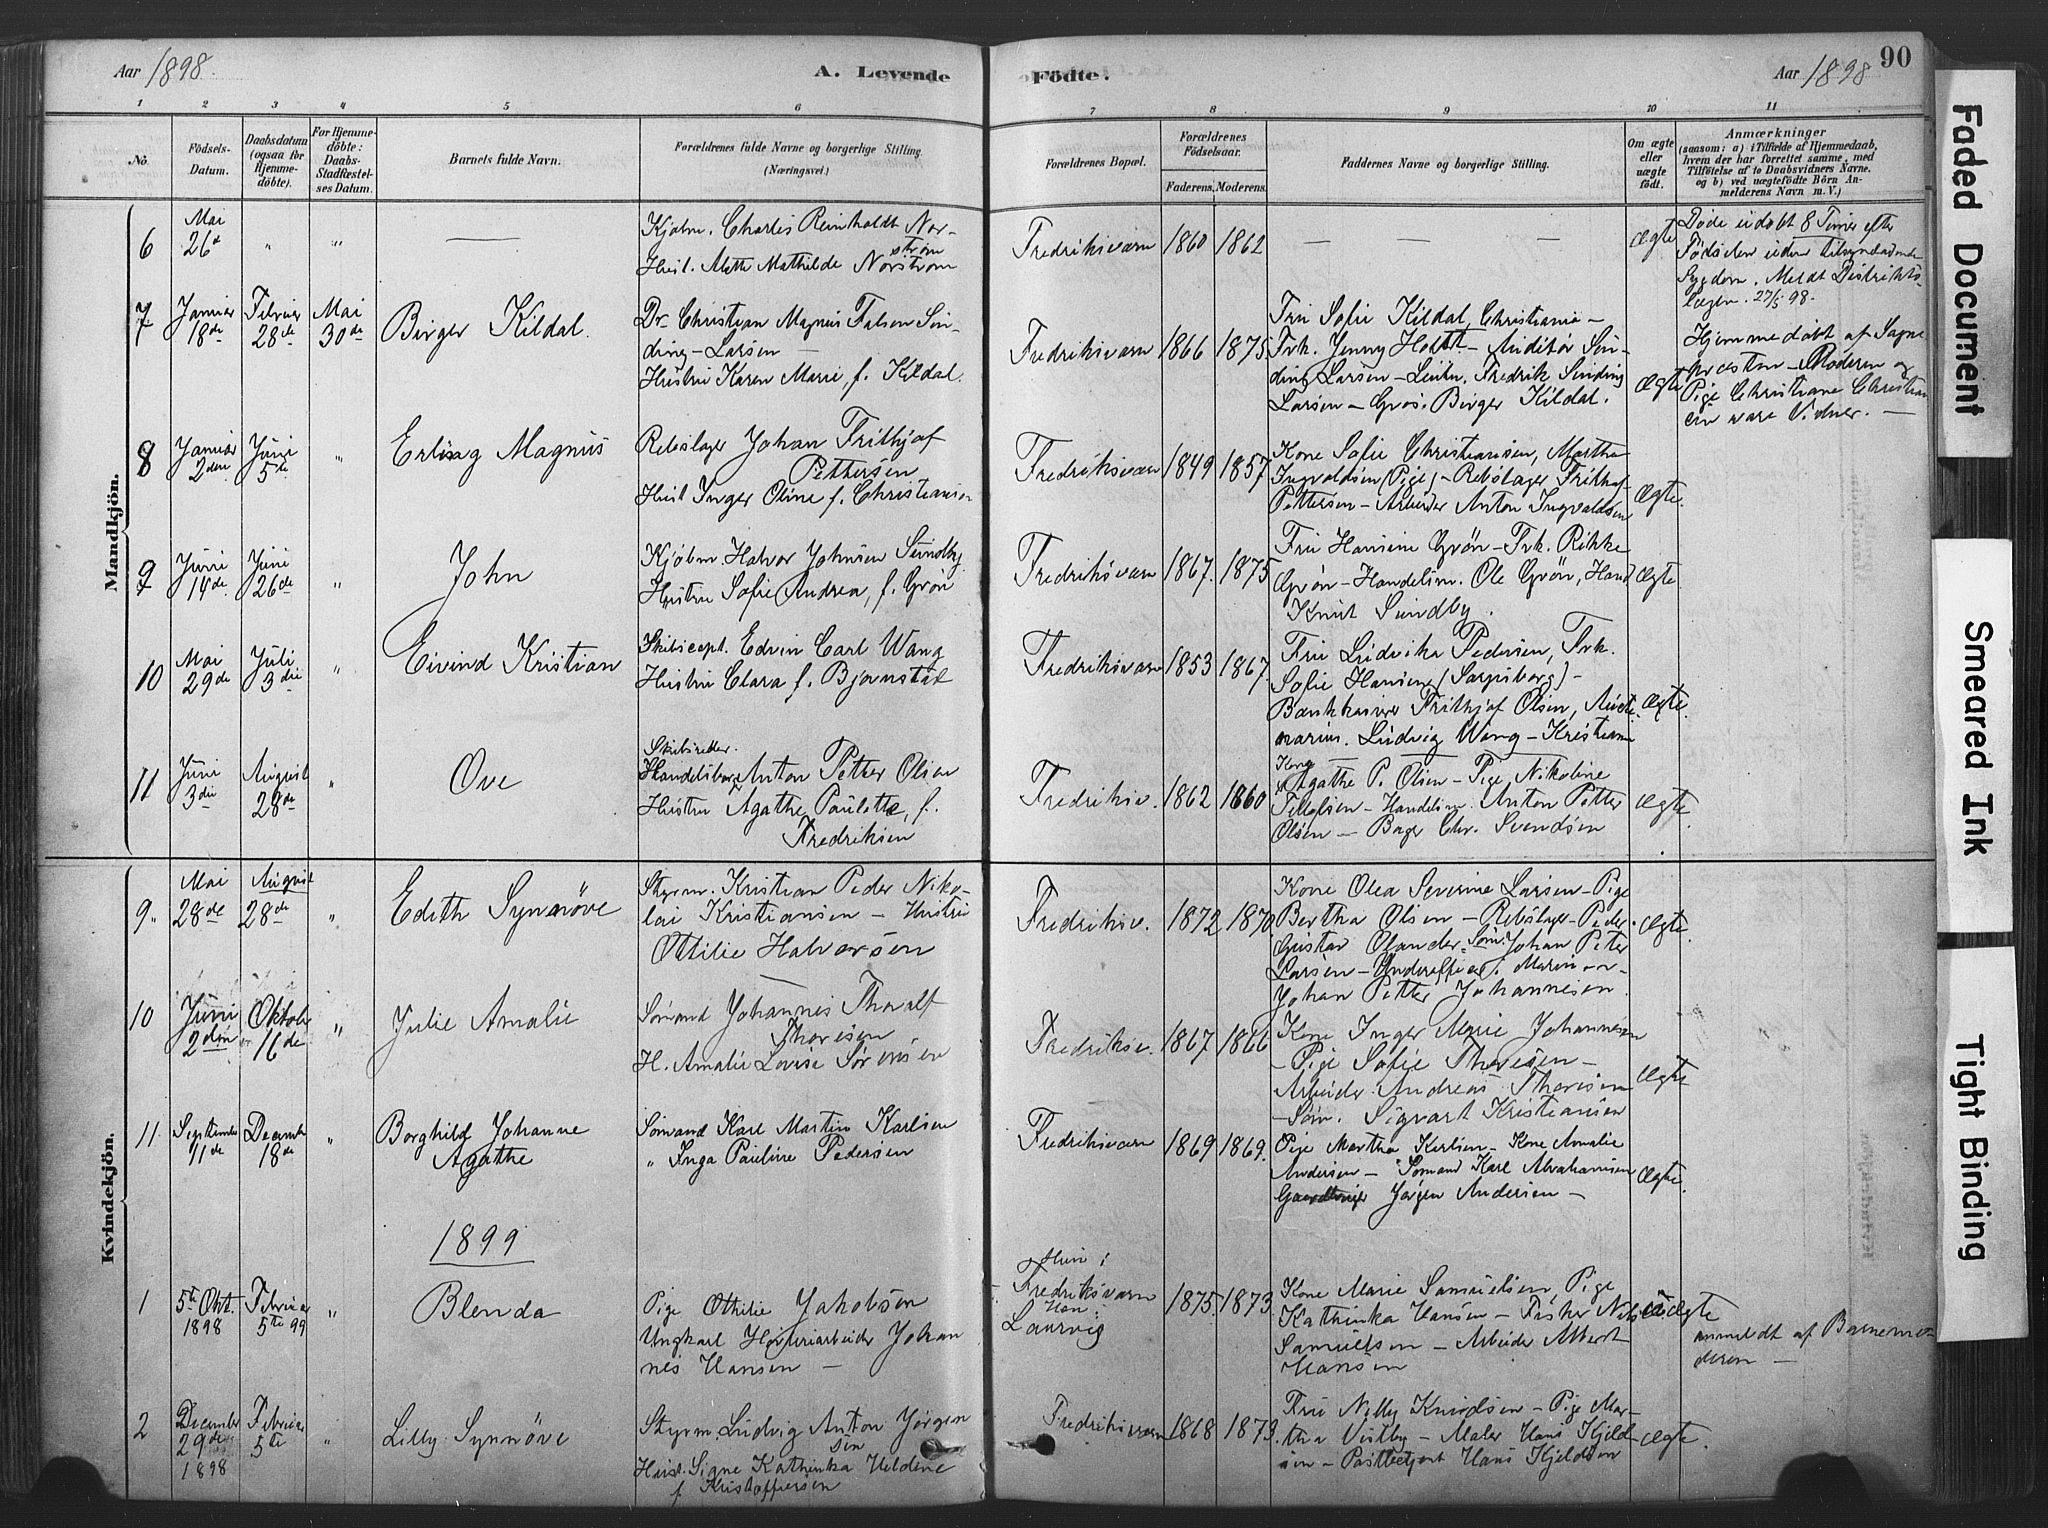 Aar 1898. A. Levende Födte. Aar 1898 90
1 2 3 4 5 6 7 8 9 10 11
No. Födsels-Datum. Daabsdatum (ogsaa for Hjemmedöbte). For Hjemmedöbte: Daabs-Stadfæstelses Datum. Barnets fulde Navn. Forældrenes fulde Navne og borgerlige Stilling. (Næringsvei.) Forældrenes Bopæl. Forældrenes Födselsaar. Faderens. Moderens. Faddernes Navne og borgerlige Stilling. Om ægte eller uægte födt. Anmærkninger
(saasom: a) i Tilfælde af Hjemmedaab,
hvem der har forrettet samme, med
Tilföielse af to Daabsvidners Navne.
og b) ved uægtefödte Börn An-
melderens Navn m. V.)
Mandkjön.
6 Mai 26de " " — Kjøbm. Charles Reinholdt Nor-
strøm
Hust. Mathilde Norstrøm
Fredriksværn 1860 1862 — — — Ægte
Døde udøbt 8 Timer efter
Fødselen uden
Sygdom. Meldt Distrikts-
lægen. 27/5 98.
7 Januar 18de Februar 28de Mai 30de Birger Kildal.
Dr. Christian Magnus Falsen Sin-
ding-Larsen —
Hustru Karen Marie, f. Kildal.
Fredriksværn 1866 1875
Fru Sofie Kildal, Christiania –
Frk. Jenny Holst – Auditør Sin-
ding Larsen – Løitn. Fredrik Sinding
Larsen – Gros. Birger Kildal.
Ægte
Hjemmedøbt af Sogne
præsten – Moderen og
Pige Christiane Christian
sen vare Vidner. —
8 Januar 2den Juni 5te " Erling Magnus
Rebslager Johan Frithjof
Pettersen
Hust. Inger Oline f. Christiansen
Fredriksværn 1849 1857
Kone Sofie Christiansen, Martha
Ingvaldsen (Pige) – Rebslager Frithjof
Pettersen – Arbeider Anton Ingvaldsen
Ægte.
9 Juni 14de Juni 26de " John
Kjøbm. Halvor Johnsen Sundby
Hustru Sofie Andrea, f. Grøn
Fredriksværn 1867. 1875
Fru Hansine Grøn – Frk. Rikke
Grøn – Handelsm. Ole Grøn, Hand
Knut Sundby.
Ægte
10 Mai 29de Juli 3die " Eivind Kristian
Skibscapt. Edvin Carl Wang
Hustru Clara f. Bjørnstad
Fredriksværn 1853 1867
Fru Ludvika Pedersen, Frk.
Sofie Hansen (Sarpsborg) –
Bankkasserer Frithjof Olsen,
Ludvig Wang – Kristiania
Ægte.
11 Juni 3die August 28de " Ove
Skibsreder.
Anton Petter Olsen
Hustru Agathe Paulette, f.
Fredriksen
Fredriksv. 1862 1860
Kone
Agathe P. Olsen – Pige Nikoline
– Handelsm. Anton Petter
Olsen – Bager Chr. Svendsen
Ægte.
Kvindekjön.
9. Mai 28de August 28de " Edith Synnøve
Styrm. Kristian Peder Niko-
lai Kristiansen – Hustru
Ottilie Halvorsen
Fredriksv. 1872 1870
Kone Olea Severine Larsen – Pige
Bertha Olsen – Rebslager – Peder
Gustav Olander – Søm. Johan Peter
Larsen – Underofficer
Johan Petter Johannesen
Ægte.
10 Juni 2den Oktob 16de " Julie Amalie
Sømand Johannes Thoralf
Thorsen
H. Amalie Lovise Sørensen
Fredriksv. 1867 1866
Kone Inger Marie Johannesen
– Pige Sofie Thorsen –
Arbeider Andreas Thorsen
– Søm. Sigvart Kristiansen
Ægte
11 September 11de Decemb 18de " Borghild Johanne
Agathe
Sømand Karl Martin Karlsen
" Inga Pauline Pedersen
Fredriksværn 1869 1869.
Pige Martha Karlsen – Kone Amalie
Andersen – Sømand Karl Abrahamsen
Jørgen Andersen –
Ægte.
1899
1 5te Okt. 1898 Februar 5te 99 " Blenda
Pige Othilie Jakobsen
Ungkarl Johan
nes Hansen –
Hun i
Fredriksværn
Han i
Laurvig
1875. 1873
Kone Marie Samuelsen, Pige
Kathinka Hansen – Fisker Nils
Samuelsen – Arbeider Albert
Hansen
Uægte
anmeldt af Barnemo-
deren —
2 December 29de 1898 Februar 5te " Lilly Synnøve
Styrm. Ludvig Anton Jørgen
sen
Hust. Signe Kathinka Heldine
f. Kristoffersen
Fredriksværn 1868 1873.
Fru Nelly Knudsen – Pige Mar-
tha Vestby – Maler Hans Kjeld-
sen – Hans Kjeldsen
Ægte.
Faded Document
Smeared Ink
Tight Binding